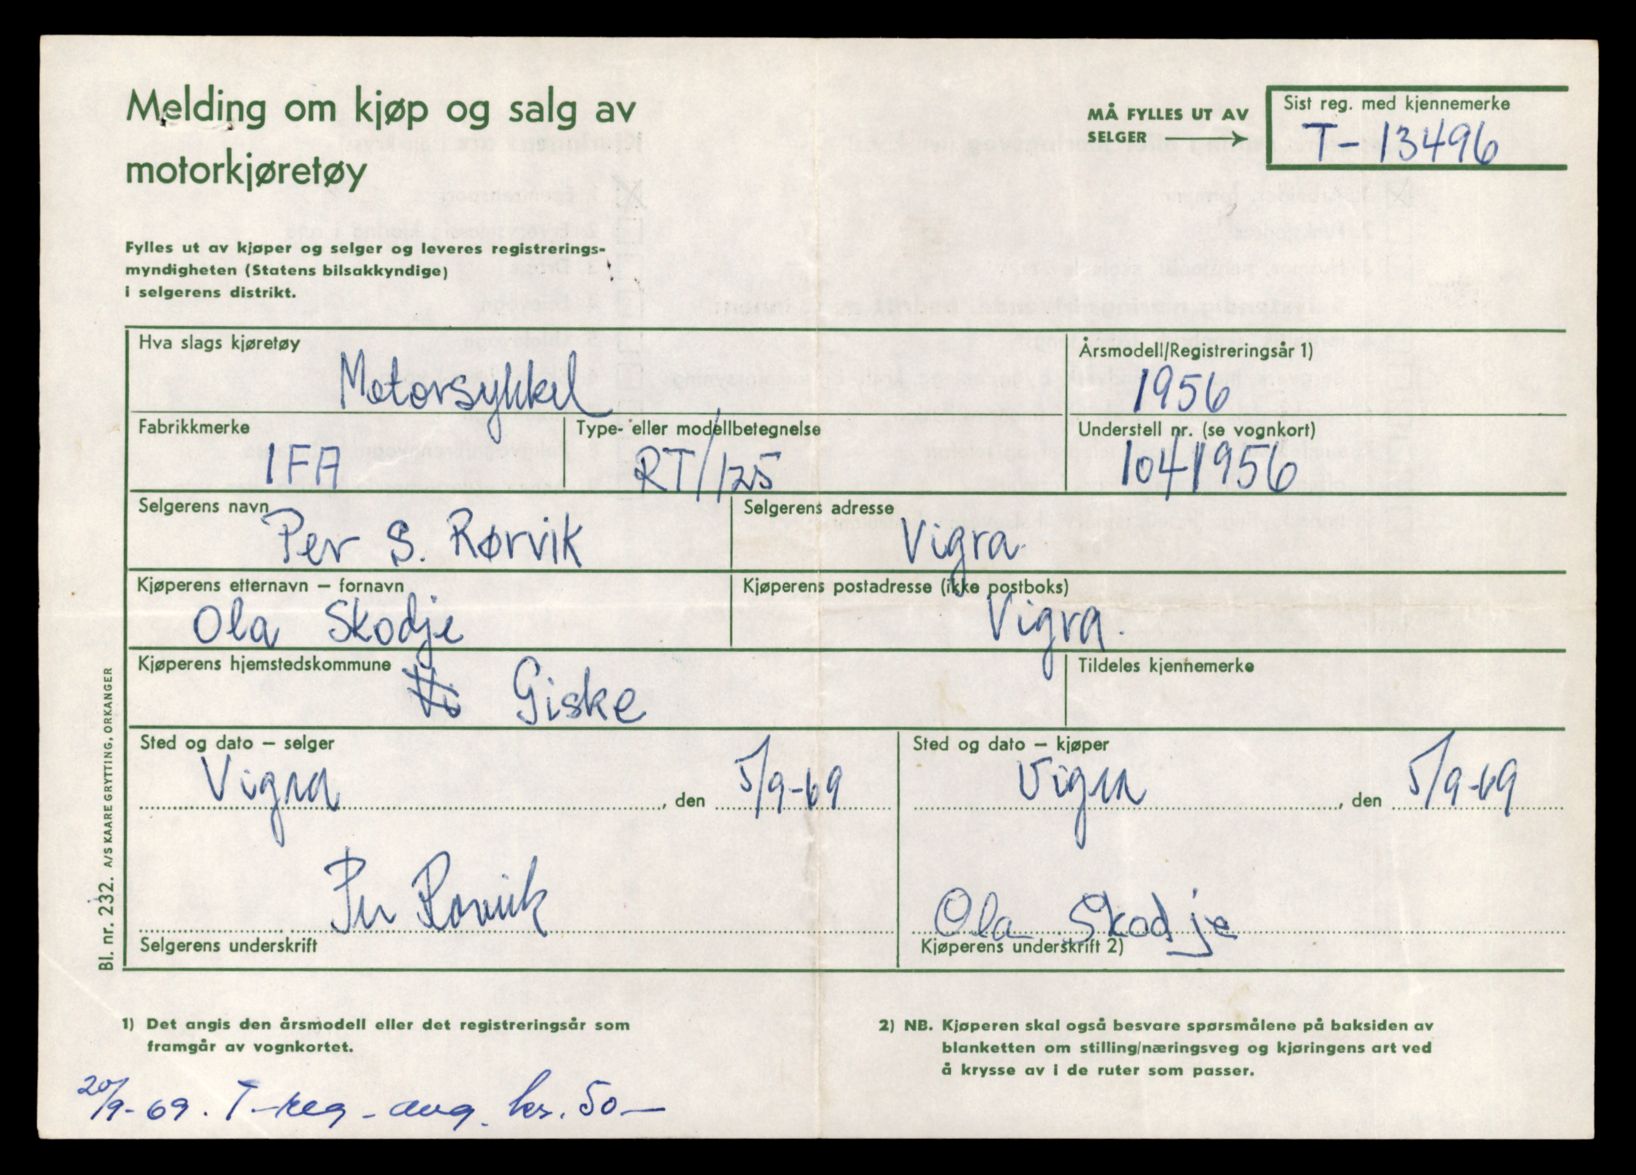 Melding om kjøp og salg av
motorkjøretøy
MÅ FYLLES UT AV
SELGER
Sist reg. med kjennemerke
T-13496
Fylles ut av kjøper og selger og leveres registrerings-
myndigheten (Statens bilsakkyndige)
i selgerens distrikt.
Hva slags kjøretøy
Motorsykkel
Årsmodell/Registreringsår 1)
1956
Fabrikkmerke
IFA
Type- eller modellbetegnelse
RT/125
Understell nr. (se vognkort)
1041956
Selgerens navn
Per S. Rørvik
Selgerens adresse
Vigra
Kjøperens etternavn – fornavn
Ola Skodje
Kjøperens postadresse (ikke postboks)
Vigra.
Kjøperens hjemstedskommune
Giske
Tildeles kjennemerke
Sted og dato – selger
Vigra , den 5/9-69
Sted og dato – kjøper
Vigra , den 5/9-69
Per Rørvik
Selgerens underskrift
Ola Skodje
Kjøperens underskrift 2)
Bl. nr. 232. A/S KAARE GRYTTING, ORKANGER
1) Det angis den årsmodell eller det registreringsår som
framgår av vognkortet.
2) NB. Kjøperen skal også besvare spørsmålene på baksiden av
blanketten om stilling/næringsveg og kjøringens art ved
å krysse av i de ruter som passer.
20/9-69. T-reg-avg. kr. 50—